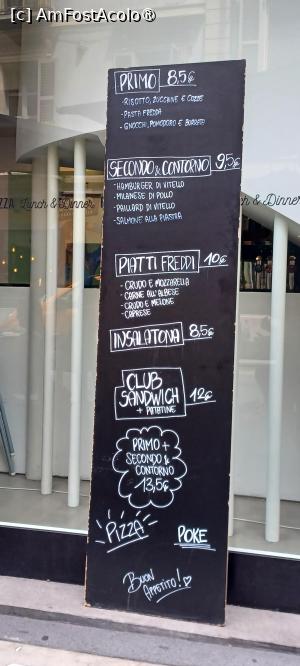 [c] AmFostAcolo®
PRIMO 8,5€
- RISOTTO, ZUCCHINE E COZZE
- PASTA FREDDA
- GNOCCHI, POMODORO E BURRATA
SECONDO & CONTORNO 9,5€
- HAMBURGER DI VITELLO
- MILANESE DI POLLO
- PAILLARD DI VITELLO
- SALMONE ALLA PIASTRA
ZZA Lunch & Dinner
ch & Dinner
PIATTI FREDDI 10€
- CRUDO E MOZZARELLA
- CARNE ALL'ALBESE
- CRUDO E MELONE
- CAPRESE
INSALATONA 8,5€
CLUB
SANDWICH 12€
+ PATATINE
PRIMO +
SECONDO &
CONTORNO
13,5€
PIZZA
POKE
BUON
APPETITO!